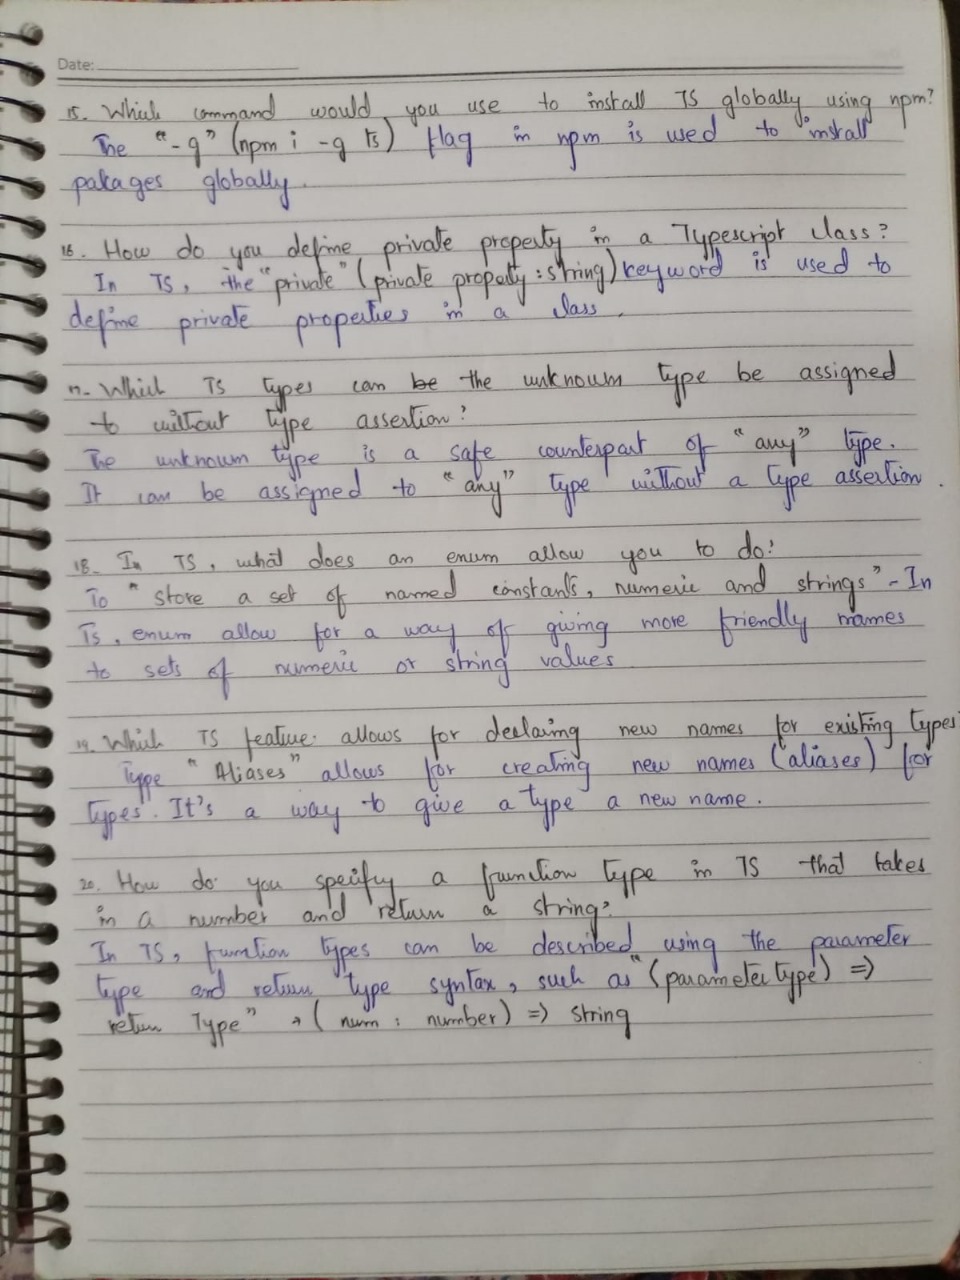 Date:
15. Which command would you use to install TS globally using npm?
The "-g" (npm i -g ts) flag in npm is used to install
pakages globally.
16. How do you define private property in a Typescript class?
In TS, the "private" (private property : string) keyword is used to
define private properties in a class.
17. Which TS types can be the unknown type be assigned
to without type assertion?
The unknown type is a safe counterpart of "any" type.
It can be assigned to "any" type without a type assertion.
18. In TS, what does an enum allow you to do?
To "store a set of named constants, numeric and strings" - In
Ts, enum allow for a way of giving more friendly names
to sets of numeric or string values
19. Which TS feature allows for declaring new names for existing types
Type "Aliases" allows for creating new names (aliases) for
types. It's a way to give a type a new name.
20. How do you specify a function type in TS that takes
in a number and return a string?
In TS, function types can be described using the parameter
type and return type syntax, such as "(parameter type) =>
return Type" → (num : number) => string